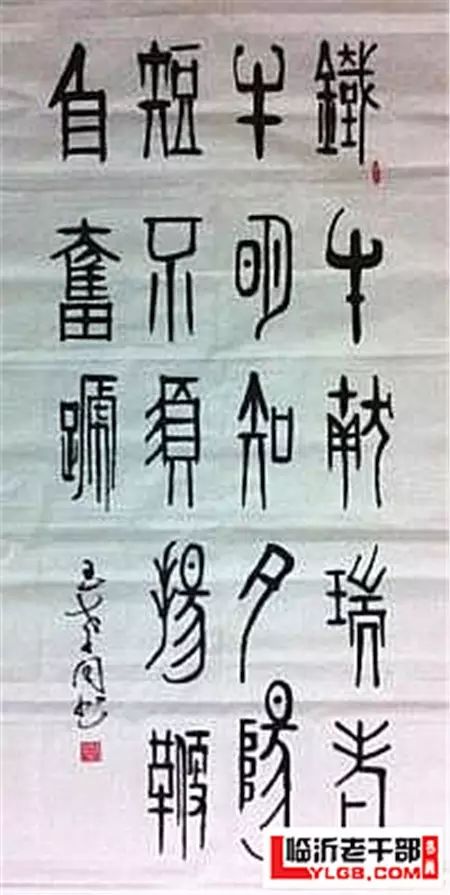 鐵牛献瑞老
牛明知夕陽
短不須揚鞭
自奮蹏
临沂老干部
LYLGB.COM